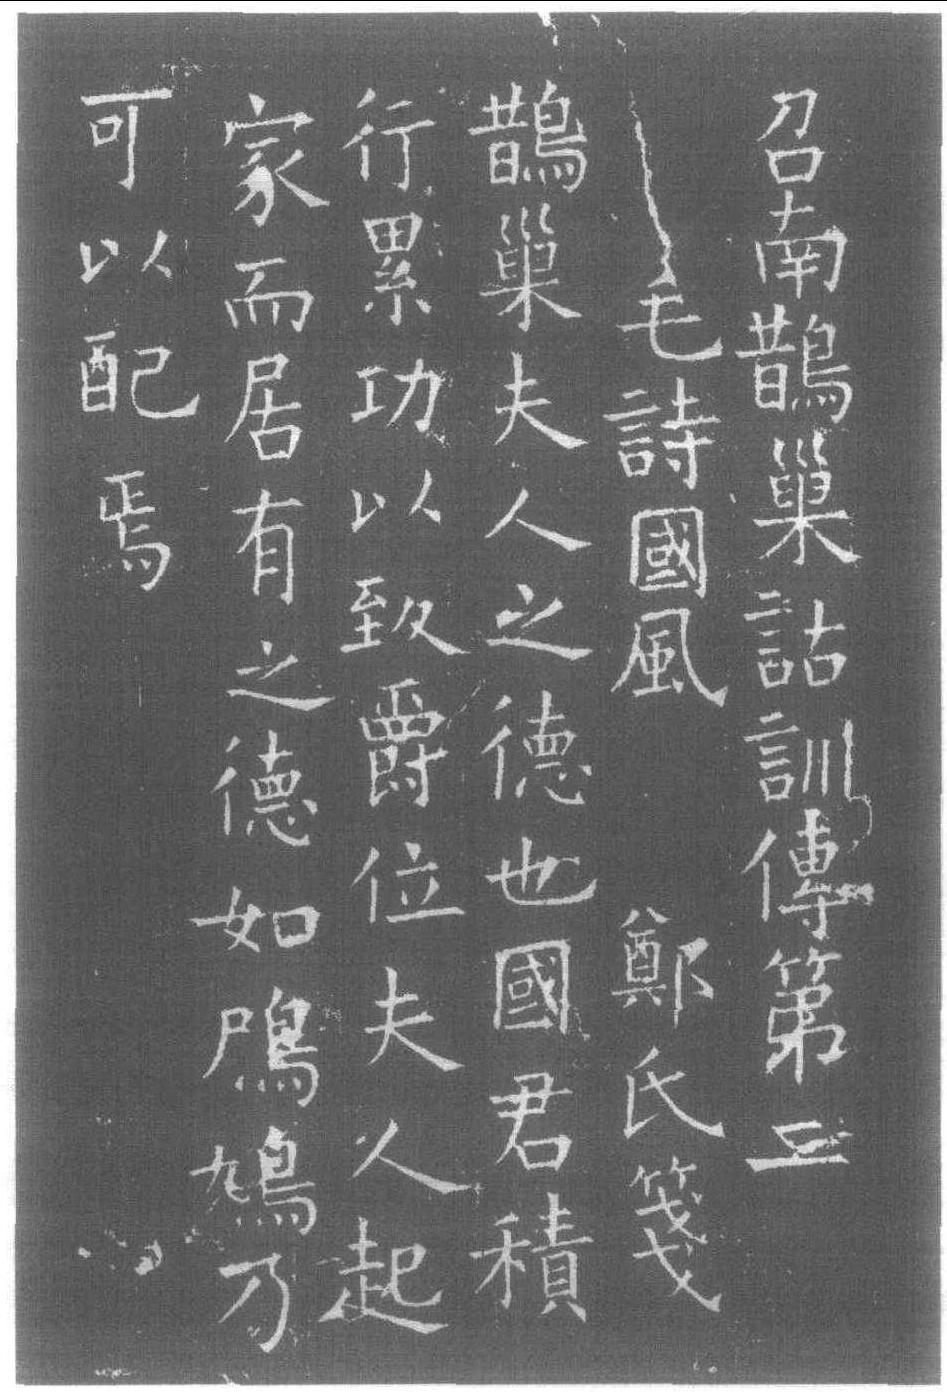 召南鵲巢詁訓傳第二
毛詩國風 鄭氏箋
鵲巢夫人之德也國君積
行累功以致爵位夫人起
家而居有之德如鳲鳩乃
可以配焉